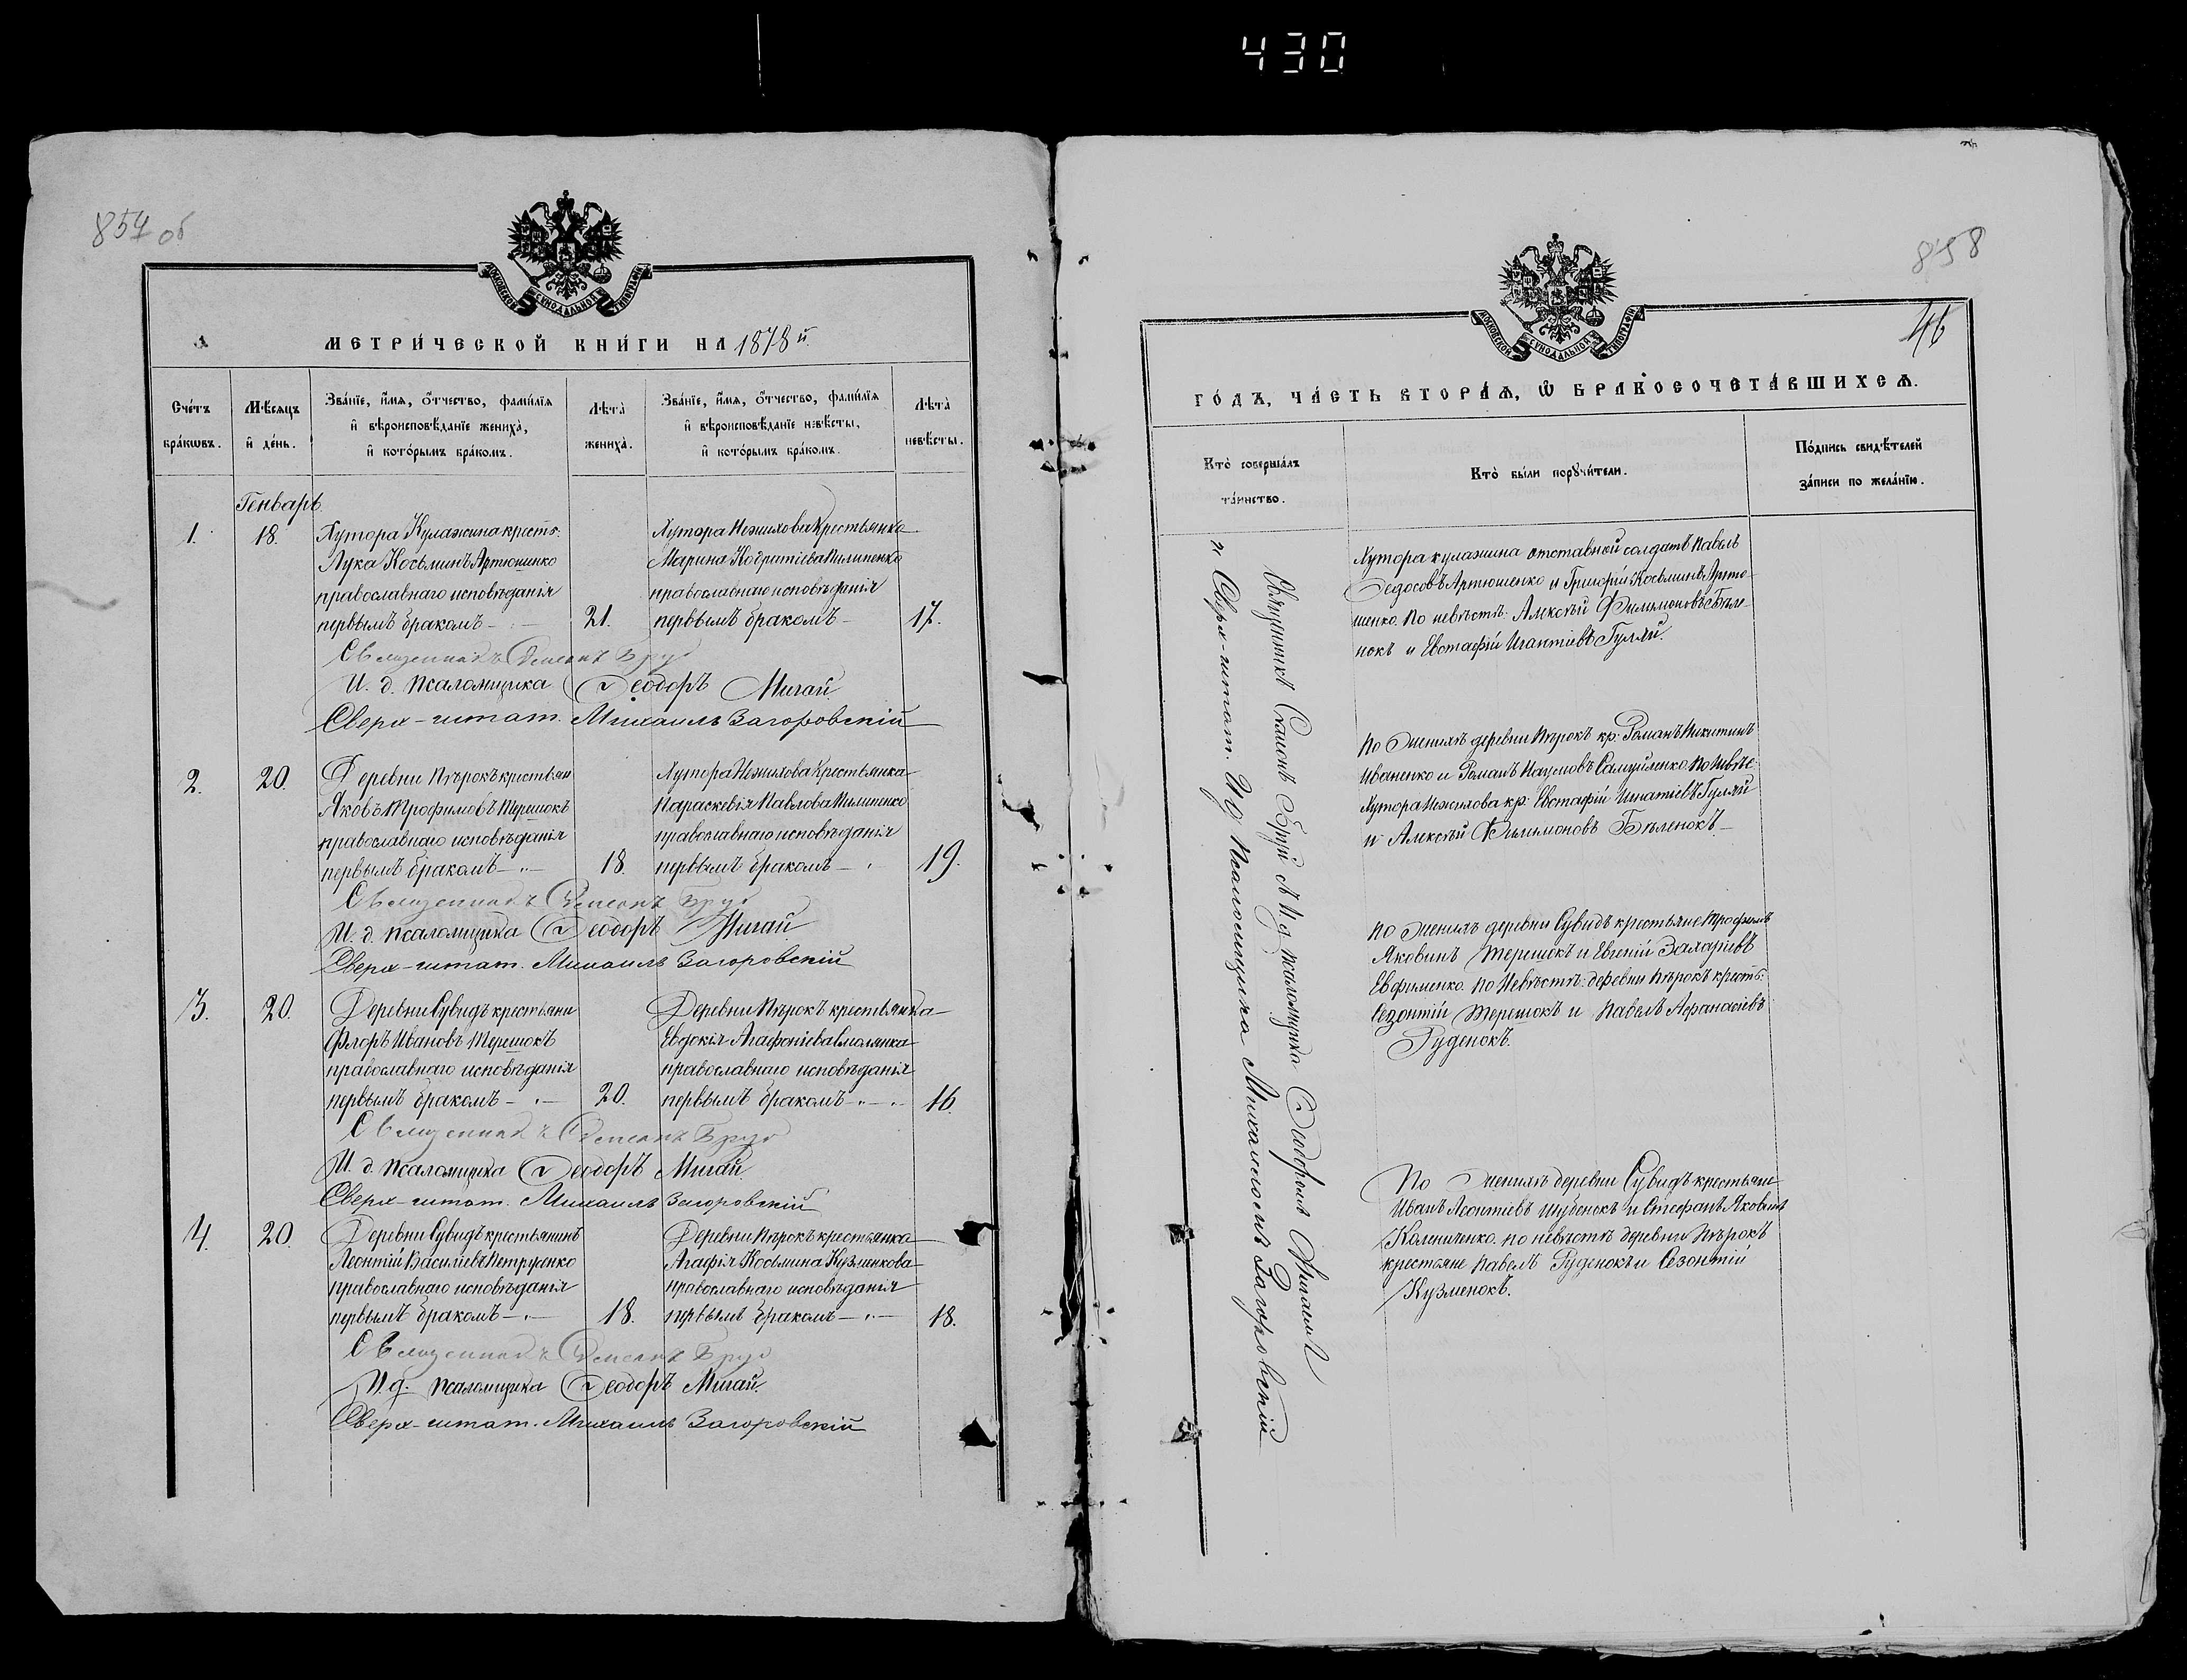 430
857 об
МОСКОВСКОЙ СѴНОДАЛЬНОЙ ТИПОГРАФІИ
МЕТРИ́ЧЕСКОЙ КНИ́ГИ НА 1878 й
Сче́тъ бра́кѡвъ.
Мѣ́сяцъ и҆ де́нь.
Зва́нїе, и҆́мѧ, ѻ҆́тчество, фами́лїѧ и҆ вѣроисповѣ́данїе жениха̀, и҆ кото́рымъ бра́комъ.
Лѣ́та̀ жениха̀.
Зва́нїе, и҆́мѧ, ѻ҆́тчество, фами́лїѧ и҆ вѣроисповѣ́данїе невѣ́сты, и҆ кото́рымъ бра́комъ.
Лѣ́та̀ невѣ́сты.
Генварь.
1.
18.
Хутора Кулажина крестъ.
Лука Косьминъ Артюшенко
православнаго исповѣданія
первымъ бракомъ —
21.
Хутора Нежилова Крестьянка
Марина Кодратіева Пилипенко
православнаго исповѣданія
первымъ бракомъ —
17.
Священникъ Симеонъ
И. д. псаломщика Ѳеодоръ Мигай
Сверх-штат. Михаилъ Загоровскій
2.
20.
Деревни Пѣрокъ крестьян
Яковъ Трофимовъ Терешокъ
православнаго исповѣданія
первымъ бракомъ —
18.
Хутора Нежилова Крестьянка
Параскевія Павлова Пилипенко
православнаго исповѣданія
первымъ бракомъ —
19.
Священникъ Симеонъ
И. д. псаломщика Ѳеодоръ Мигай
Сверх-штат. Михаилъ Загоровскій
3.
20.
Деревни Сувидъ крестьяни
Флоръ Ивановъ Терешокъ
православнаго исповѣданія
первымъ бракомъ —
20.
Деревни Пѣрокъ крестьянка
Евдокія Агафоніева Смолянка
православнаго исповѣданія
первымъ бракомъ —
16.
Священникъ Симеонъ
И. д. псаломщика Ѳеодоръ Мигай
Сверх-штат. Михаилъ Загоровскій
4.
20.
Деревни Сувидъ крестьянинъ
Леонтій Васильевъ Петрусенко
православнаго исповѣданія
первымъ бракомъ —
18.
Деревни Пѣрокъ крестьянка
Агафія Косьмина Кузменкова
православнаго исповѣданія
первымъ бракомъ —
18.
Священникъ Симеонъ
И. д. псаломщика Ѳеодоръ Мигай.
Сверх-штат. Михаилъ Загоровскій
858
46
МОСКОВСКОЙ СѴНОДАЛЬНОЙ ТИПОГРАФІИ
ГО́ДЪ, ЧА́СТЬ ВТОРА́Ѧ, Ѡ҆ БРАКОСОЧЕТА́ВШИХСѦ.
Кто̀ соверша́лъ та́инство.
Кто̀ бы́ли порꙋчи́тели.
По́дпись свидѣ́телей за́писи по жела́нїю.
Священникъ Симеонъ съ И. д. псаломщика Ѳеодоромъ Мигаемъ
и Сверх-штат. И. д. Псаломщика Михаиломъ Загоровскій
Хутора кулажина отставной солдатъ Павелъ
Ѳедосовъ Артюшенко и Григорій Косьминъ Артю-
шенко. По невѣстѣ: Алексѣй Филимоновъ Бѣле-
нокъ и Евстафій Игнатіевъ Гуляй.
По Женихѣ деревни Пѣрокъ кр: Романъ Никитинъ
Иваненко и Романъ Наумовъ Самуйленко. По Невѣс:
Хутора Нежилова кр: Евстафій Игнатіевъ Гуляй
и Алексѣй Филимоновъ Бѣленокъ —
По Женихѣ деревни Сувидъ крестьяне Трофимъ
Яковинъ Терешокъ и Евгеній Захаріевъ
Евфименко. По Невѣстѣ: деревни Пѣрокъ кресть:
Созонтій Терешокъ и Павелъ Афанасіевъ
Руденокъ.
По Женихѣ деревни Сувидъ крестьяне
Иванъ Леонтіевъ Шубенокъ и Стефанъ Яковинъ
Колениченко. по невѣстѣ деревни Пѣрокъ
крестяне Павелъ Руденокъ и Созонтій
Кузменокъ.